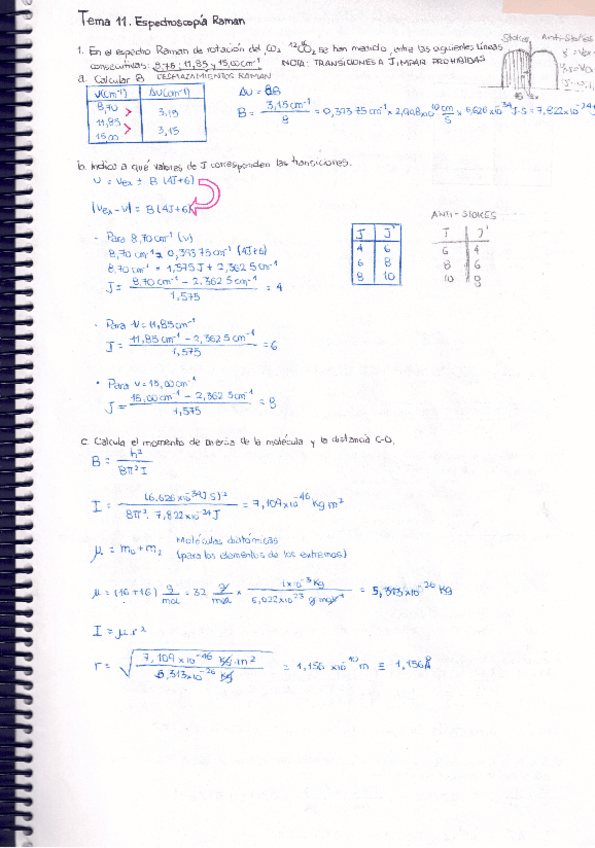 Tema 11. Espectroscopía Raman
Stokes Anti-Stokes
1. En el espectro Raman de rotación del CO₂ ¹²C se han medido, entre las siguientes líneas
consecutivas: 8,75; 11,85 y 15,00 cm⁻¹ NOTA: TRANSICIONES A J, IMPAR PROHIBIDAS
a. Calcular B DESPLAZAMIENTOS RAMAN
ν(cm⁻¹) Δν(cm⁻¹)
8,70
11,85
15,00
3,15
3,15
Δν = 8B
B = 3,15 cm⁻¹ / 8 = 0,39375 cm⁻¹ × 2,998×10¹⁰ cm/s × 6,626×10⁻³⁴ J·s = 7,822×10⁻²⁴
b. Indica a qué valores de J corresponden las transiciones.
ν = νex ± B (4J+6)
|νex-ν| = B(4J+6)
- Para 8,70 cm⁻¹ (ν)
8,70 cm⁻¹ = 0,39375 cm⁻¹ (4J+6)
8,70 cm⁻¹ = 1,575 J + 2,3625 cm⁻¹
J = 8,70 cm⁻¹ - 2,3625 cm⁻¹ / 1,575 = 4
J J'
4 6
6 8
8 10
ANTI-STOKES
J J'
6 4
8 6
10 8
- Para ν = 11,85 cm⁻¹
J = 11,85 cm⁻¹ - 2,3625 cm⁻¹ / 1,575 = 6
• Para ν = 15,00 cm⁻¹
J = 15,00 cm⁻¹ - 2,3625 cm⁻¹ / 1,575 = 8
c. Calcula el momento de inercia de la molécula y la distancia C-O.
B = h² / 8π² I
I = (6,626×10⁻³⁴ J S)² / 8π² · 7,822×10⁻²⁴ J = 7,109×10⁻⁴⁶ Kg m²
μ = m₁ + m₂ Moléculas diatómicas
(para los elementos de los extremos)
μ = (16+16) g/mol = 32 g/mol × 1×10⁻³ Kg / 6,022×10²³ g mol⁻¹ = 5,313×10⁻²⁶ Kg
I = μ·r²
r = √ 7,109×10⁻⁴⁶ Kg·m² / 5,313×10⁻²⁶ Kg = 1,156 ×10⁻¹⁰ m ≡ 1,156 Å